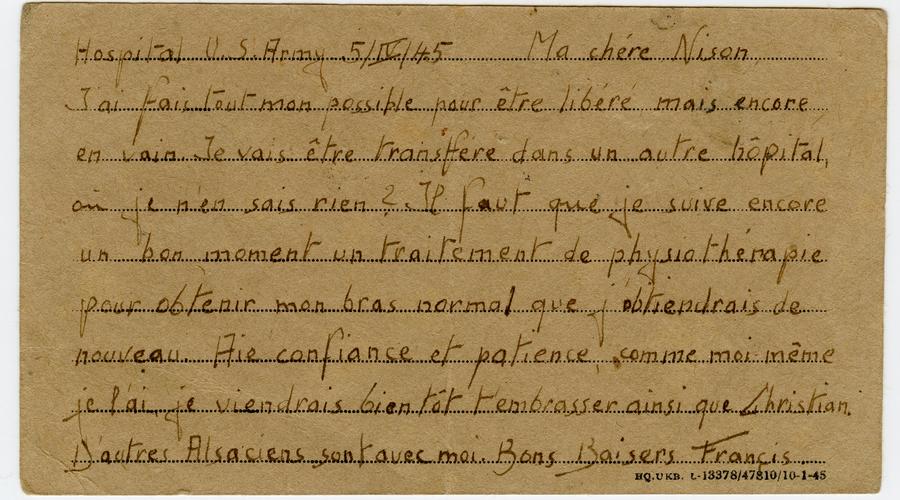 Hospital U.S. Army 5/IV/45 Ma chére Nison
J'ai fais tout mon possible pour être libéré mais encore
en vain. Je vais être transfére dans un autre hôpital,
où je n'en sais rien ?. Il faut que je suive encore
un bon moment un traitement de physiothérapie
pour obtenir mon bras normal que j'obtiendrais de
nouveau. Aie confiance et patience, comme moi-même
je l'ai, je viendrais bientôt t'embrasser ainsi que Christian.
D'autres Alsaciens sont avec moi. Bons Baisers Francis
HQ.UKB. L-13378/47810/10-1-45